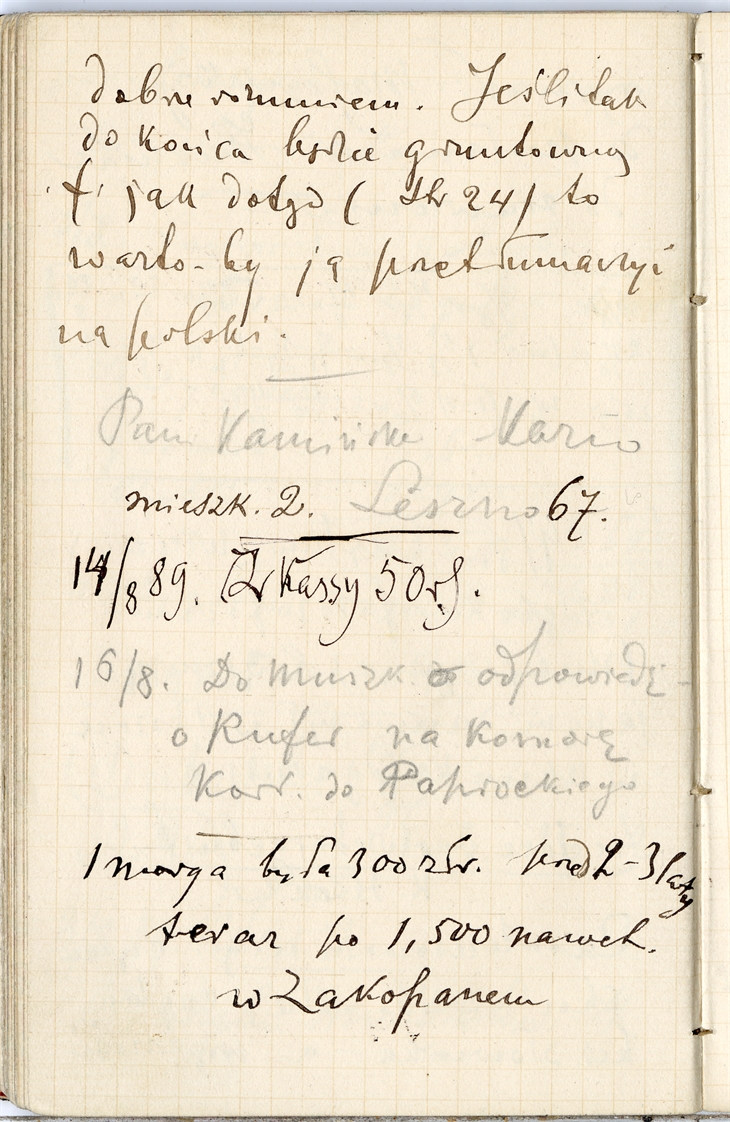 dobrze rozumiem. Jeśli tak
do końca będzie gruntowną
t. jak dotąd (str 24) to
warto-by ją przetłumaczyć
na polski.
Pani Kamińska Maria
mieszk. 2. Leszno 67.
14/8 89. Z Kassy 50 r.
16/8. Do odpowiedź
o Kufer na Komorę
Korr. do Paprockiego
1 morga była 300 złr. przed 2-3 laty
teraz po 1,500 nawet.
w Zakopanem